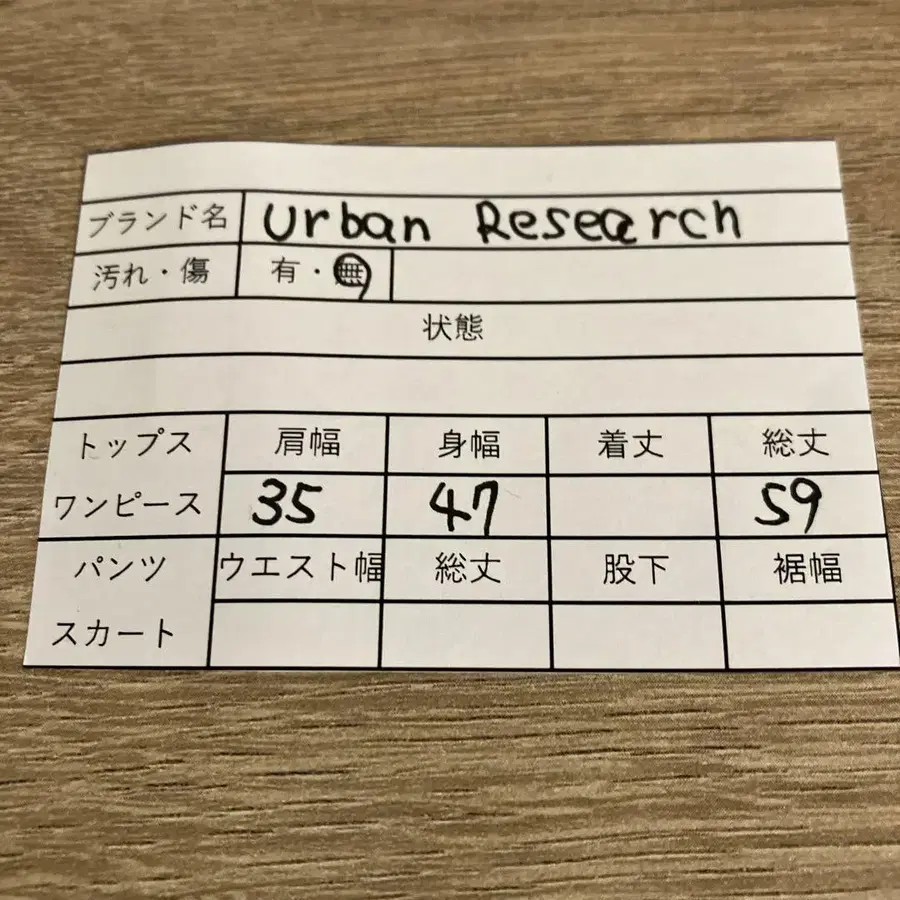 ブランド名 Urban Research
汚れ・傷 有・無
状態
トップス 肩幅 身幅 着丈 総丈
ワンピース 35 47 59
パンツ ウエスト幅 総丈 股下 裾幅
スカート